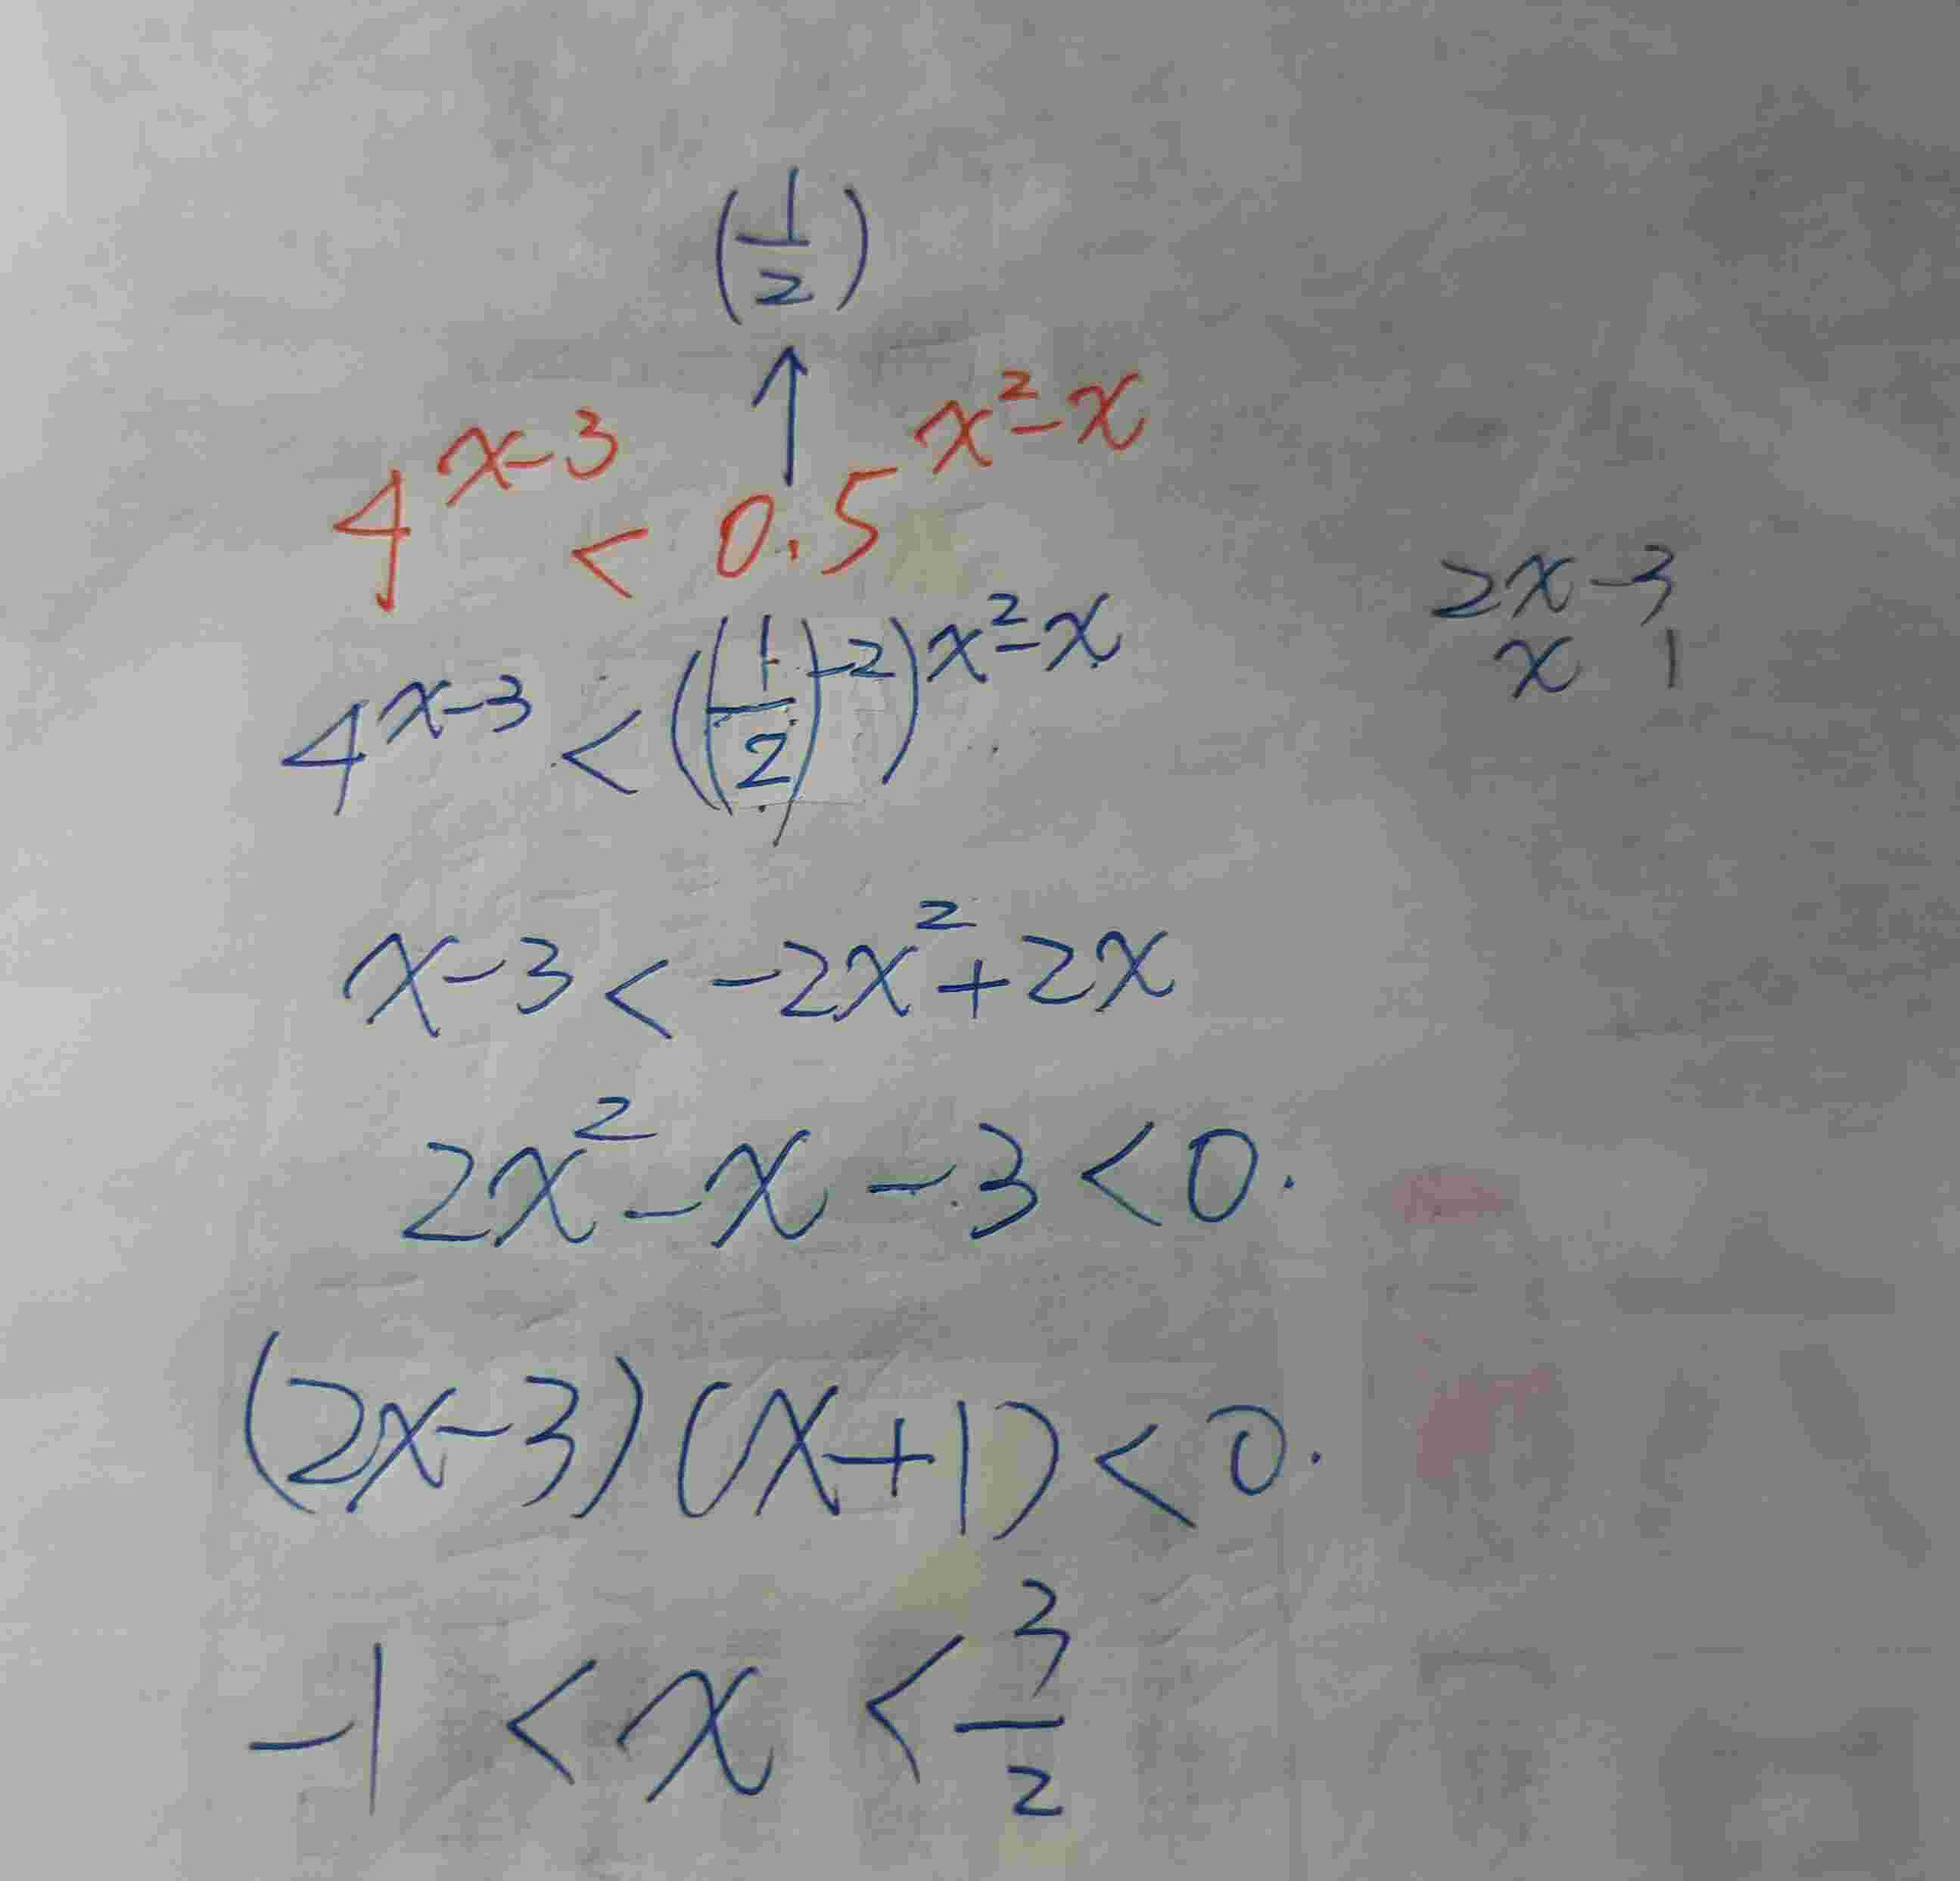 (1/2)
↑
4^{x-3} < 0.5^{x²-x}
4^{x-3} < ((1/2)^{-2})^{x²-x}
2x-3
x 1
x-3 < -2x²+2x
2x²-x-3<0.
(2x-3)(x+1)<0.
-1 < x < 3/2